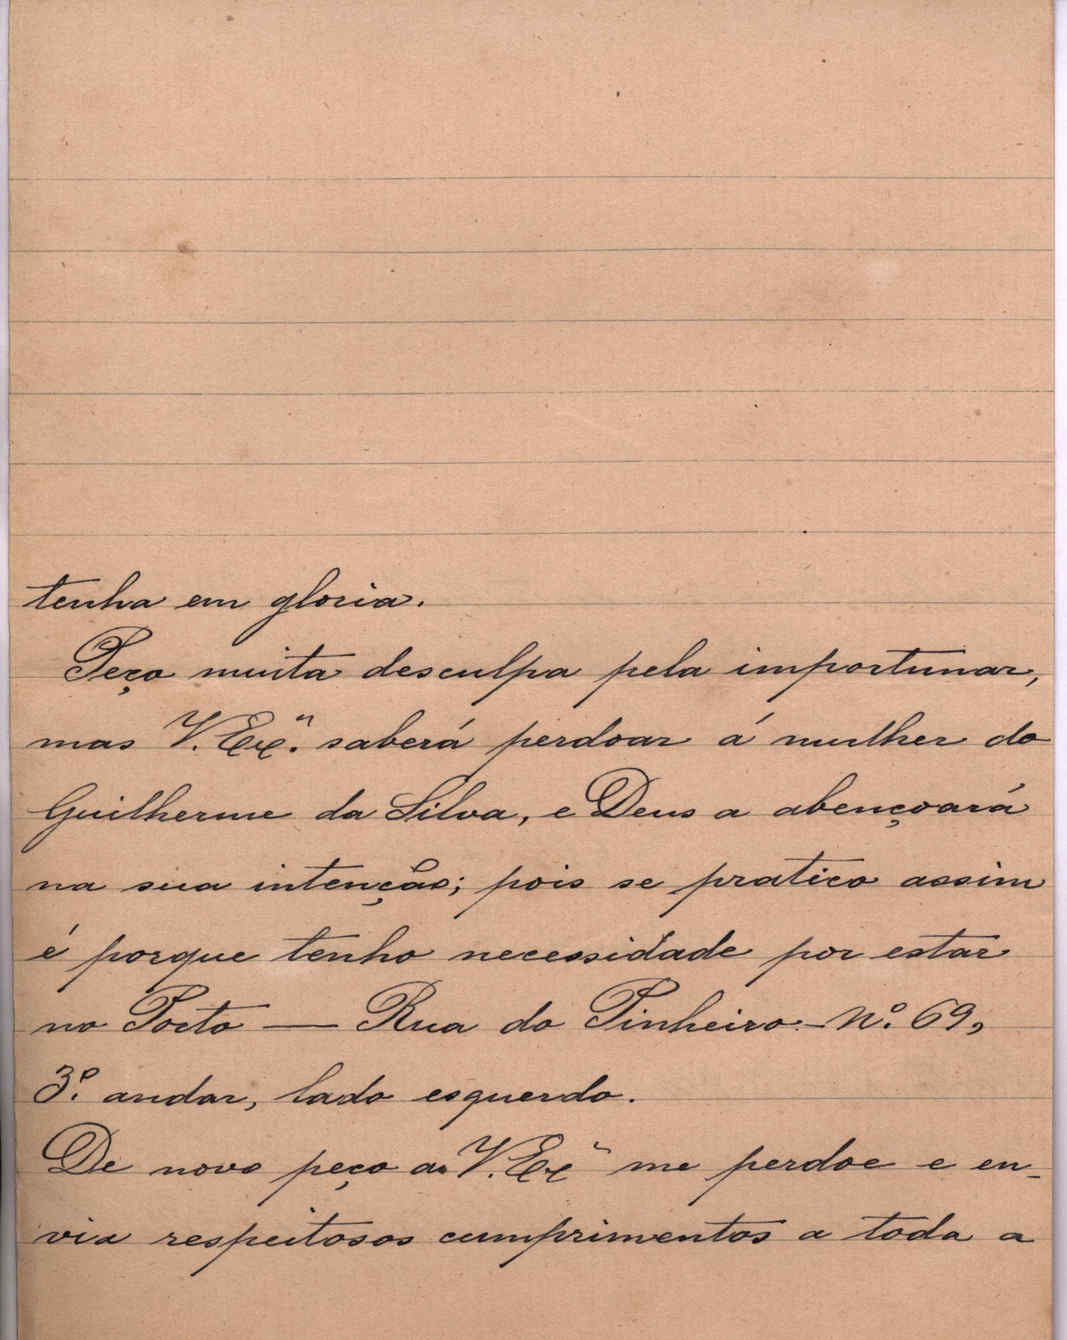 tenha em gloria.
Peço muita desculpa pela importunar,
mas V. Exª. saberá perdoar á mulher do
Guilherme da Silva, e Deus a abençoará
na sua intenção; pois se pratico assim
é porque tenho necessidade por estar
no Porto — Rua do Pinheiro — Nº. 69,
3º. andar, lado esquerdo.
De novo peço a V. Exª me perdoe e en-
via respeitosos cumprimentos a toda a